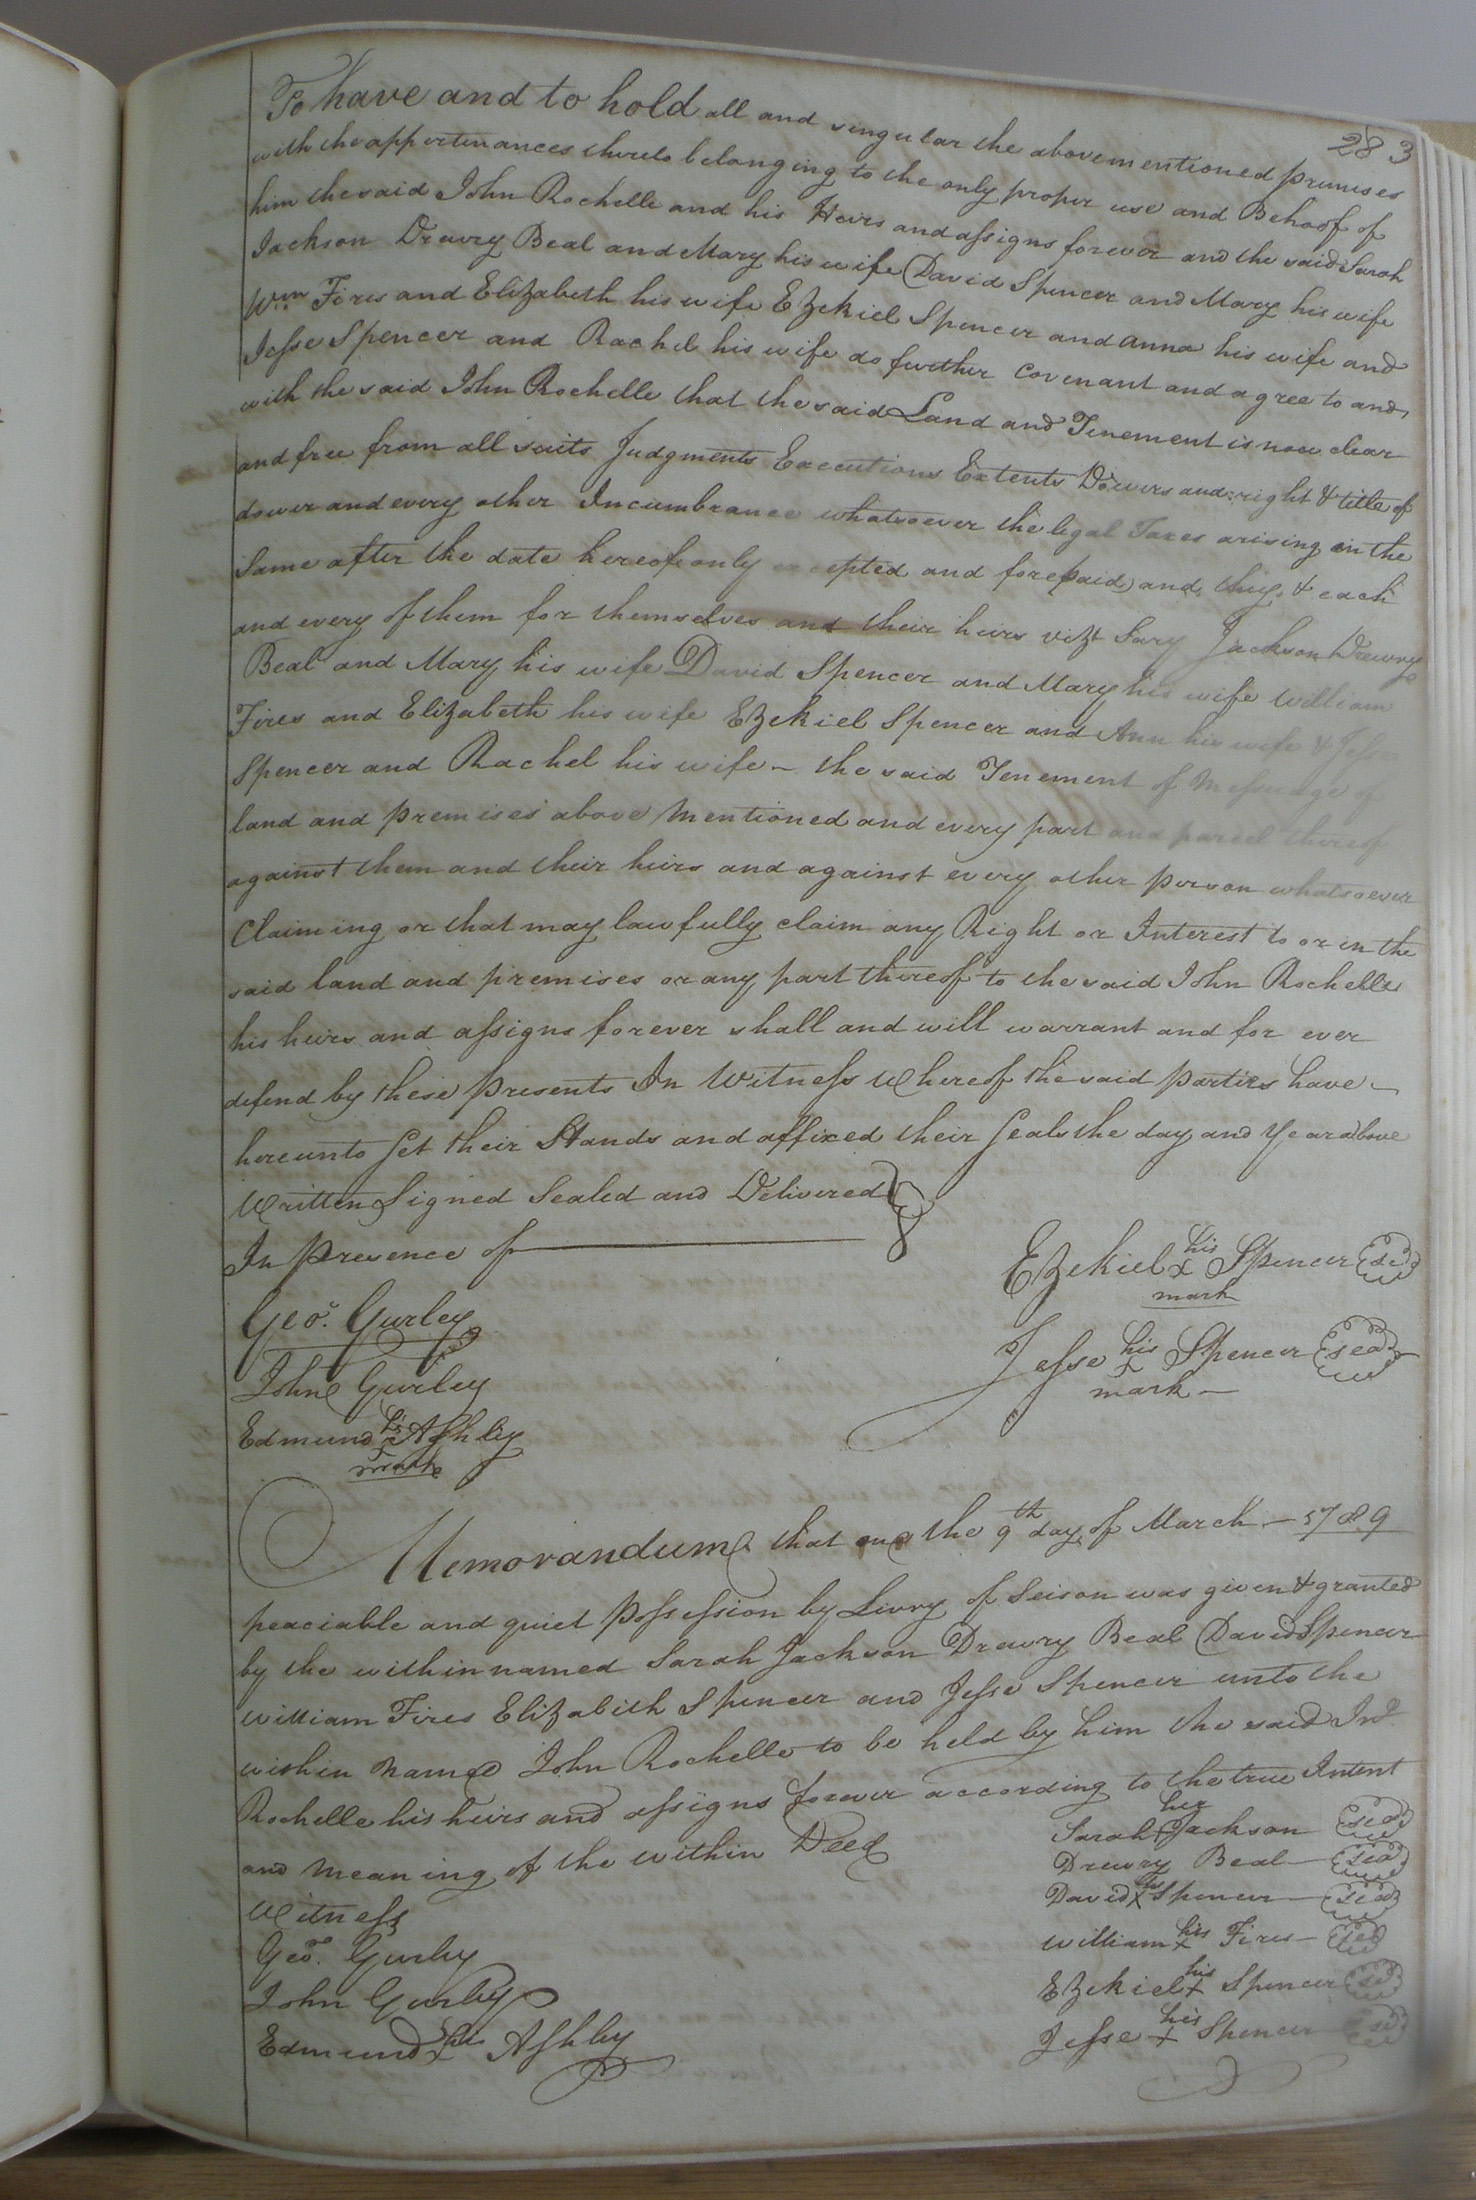 283
To have and to hold all and singular the abovementioned premises
with the appertinances thereto belonging to the only proper use and Behoof of
him the said John Rochelle and his Heirs and assigns forever and the said Sarah
Jackson Drewry Beal and Mary his wife David Spencer and Mary his wife
Wm Fires and Elizabeth his wife Ezekiel Spencer and Anna his wife and
Jesse Spencer and Rachel his wife do further Covenant and agree to and
with the said John Rochelle that the said Land and Tenement is now clear
and free from all suits Judgments Executions Extents Dowers and right & title of
dower and every other Incumbrance whatsoever the legal Taxes arising on the
Same after the date hereof only excepted and forepaid) and they & each
and every of them for themselves and their heirs vizt Sary Jackson Drewry
Beal and Mary his wife David Spencer and Mary his wife William
Fires and Elizabeth his wife Ezekiel Spencer and Ann his wife & Jesse
Spencer and Rachel his wife – the said Tenement of Messuage of
land and premises above Mentioned and every part and parcel thereof
against them and their heirs and against every other person whatsoever
Claiming or that may lawfully claim any Right or Interest to or in the
said land and premises or any part thereof to the said John Rochelle
his heirs and assigns forever shall and will warrant and for ever
defend by these presents In Witness Whereof the said parties have –
hereunto Set their Hands and affixed their Seals the day and Year above
Written Signed Sealed and Delivered
In presence of
Ezekiel his x mark Spencer seal
Geo. Gurley
Jesse his x mark Spencer seal
John Gurley
Edmund his x mark Ashley
Memorandum that on the 9th day of March – 1789
peaciable and quiet possession by Livry of Seison was given & granted
by the within named Sarah Jackson Drewry Beal David Spencer
William Fires Elizabeth Spencer and Jesse Spencer unto the
within Named John Rochelle to be held by him the said Jno.
Rochelle his heirs and assigns forever according to the true Intent
and meaning of the within Deed
Sarah her x Jackson seal
Drewry Beal seal
David his x Spencer seal
Witness
William his x Fires seal
Geo. Gurley
Ezekiel his x Spencer seal
John Gurley
Jesse his x Spencer seal
Edmund his x Ashby